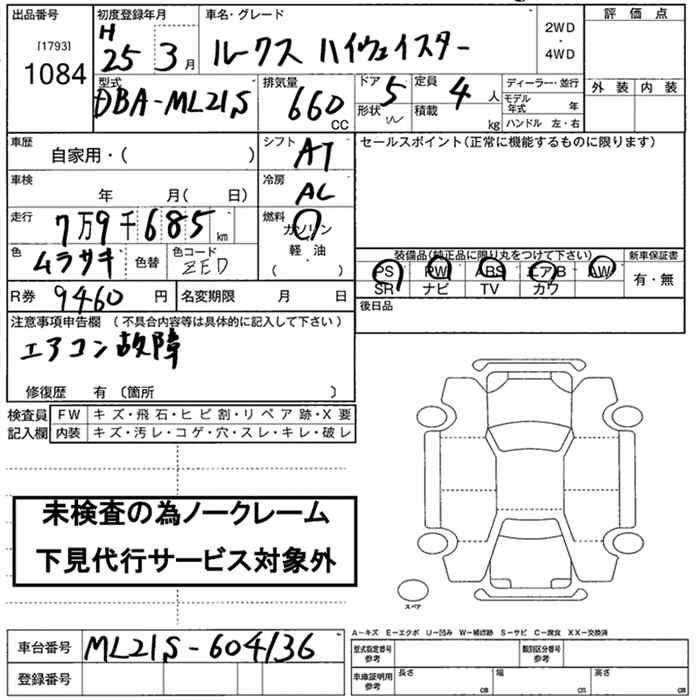 出品番号 初度登録年月 車名・グレード 評価点
[1793] H 2WD
1084 25 3月 ルークス ハイウェイスター ・
4WD
型式 排気量 ドア 定員 ディーラー・並行 外装 内装
DBA-ML21S 660 CC 5 4人 モデル年式 年
形状 積載 kg ハンドル 左・右
車歴 自家用・( ) シフト AT セールスポイント(正常に機能するものに限ります)
車検 年 月( 日) 冷房 AC
走行 7万9千685km 燃料 ガソリン
軽・油
( )
色 ムラサキ 色替 色コード ZED 装備品(純正品に限り丸をつけて下さい) 新車保証書
PS PW ABS エアB AW 有・無
SR ナビ TV カワ
R券 9460円 名変期限 月 日 後日品
注意事項申告欄 (不具合内容等は具体的に記入して下さい)
エアコン故障
修復歴 有 〔箇所 〕
検査員 FW キズ・飛石・ヒビ割・リペア跡・X要
記入欄 内装 キズ・汚レ・コゲ・穴・スレ・キレ・破レ
未検査の為ノークレーム
下見代行サービス対象外
スペア
A-キズ E-エクボ U-凹み W-補修跡 S-サビ C-腐食 XX-交換済
車台番号 ML21S-604136 型式指定番号 参考 類別区分番号 参考
登録番号 車庫証明用 参考 長さ cm 幅 cm 高さ cm